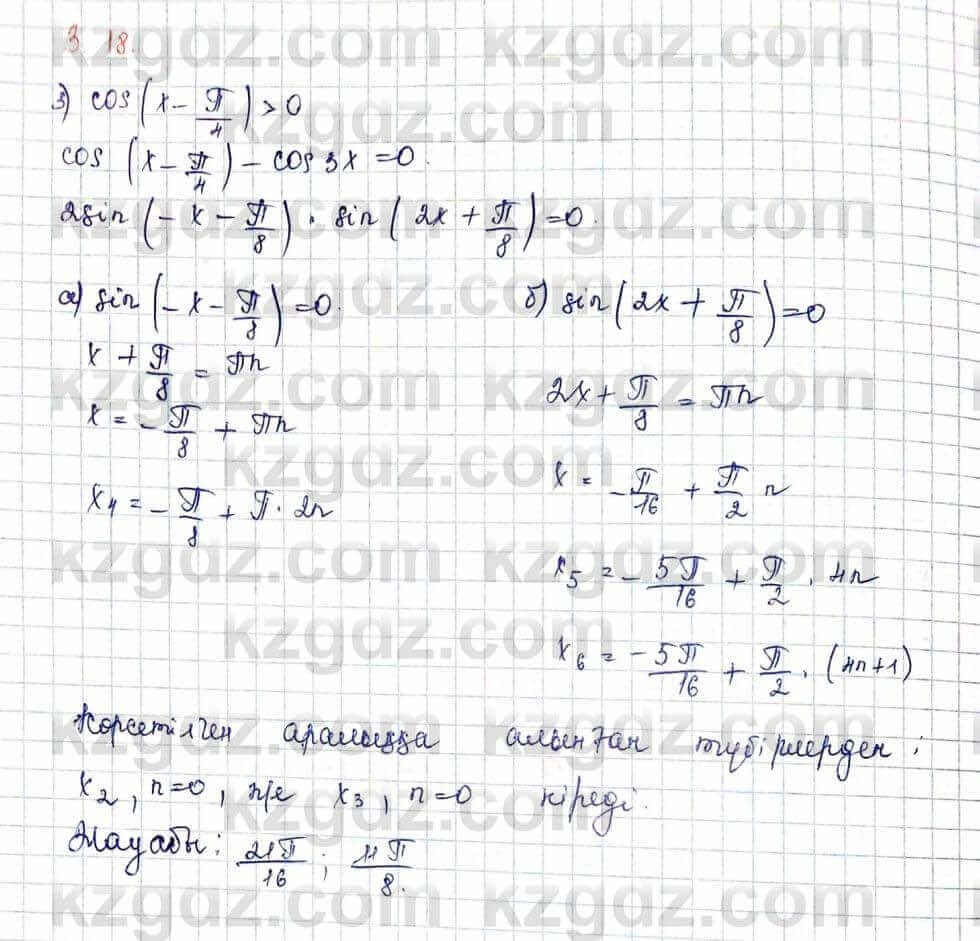 3.18.
3) cos(x - π/4) > 0
cos(x - π/4) - cos 3x = 0.
2sin(-x - π/8) · sin(2x + π/8) = 0.
а) sin(-x - π/8) = 0.
x + π/8 = πn
x = -π/8 + πn
x₄ = -π/8 + π · 2n
б) sin(2x + π/8) = 0
2x + π/8 = πn
x = -π/16 + π/2 n
x₅ = -5π/16 + π/2 · 4n
x₆ = -5π/16 + π/2 · (4n+1)
Көрсетілген аралыққа алынған түбірлерден :
x₂, n=0, ж/е x₃, n=0 кіреді.
Жауабы: 21π/16 ; 11π/8.
kzgdz.com